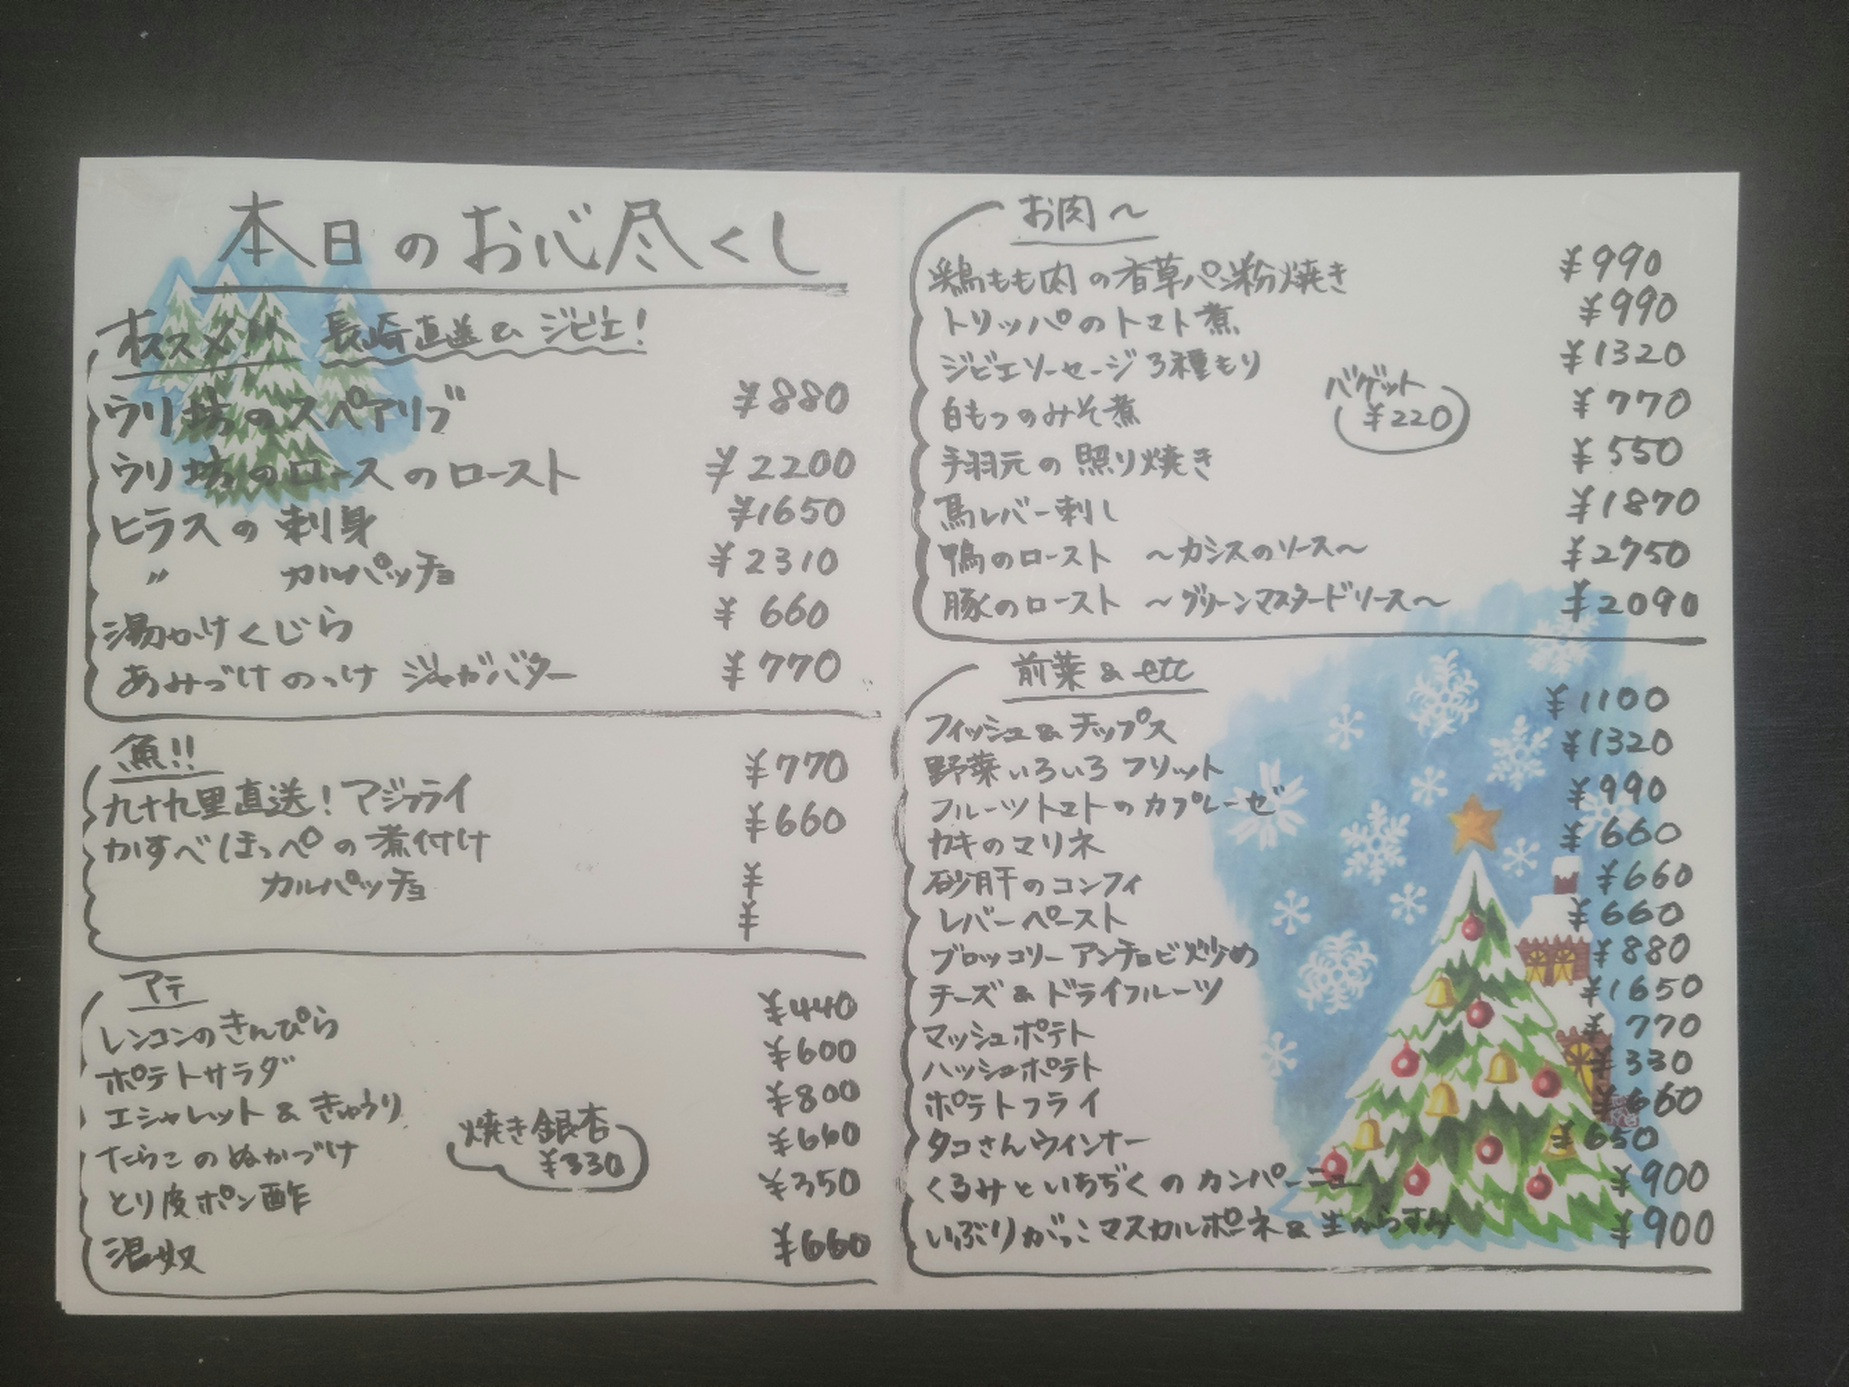 本日のお心尽くし
オススメ!! 長崎直送&ジビエ!
ウリ坊のスペアリブ ¥880
ウリ坊のロースのロースト ¥2200
ヒラスの刺身 ¥1650
〃 カルパッチョ ¥2310
湯かけくじら ¥660
あみづけのっけ ジャガバター ¥770
魚!!
九十九里直送!アジフライ ¥770
かすべほっぺの煮付け ¥660
カルパッチョ ¥
¥
アテ
レンコンのきんぴら ¥440
ポテトサラダ ¥600
エシャレット&きゅうり ¥800
たらこのぬかづけ ¥660
とり皮ポン酢 ¥350
温奴 ¥660
焼き銀杏
¥330
お肉〜
鶏もも肉の香草パン粉焼き ¥990
トリッパのトマト煮 ¥990
ジビエソーセージ3種もり ¥1320
白もつのみそ煮 ¥770
手羽元の照り焼き ¥550
馬レバー刺し ¥1870
鴨のロースト 〜カシスのソース〜 ¥2750
豚のロースト 〜グリーンマスタードソース〜 ¥2090
バゲット
¥220
前菜&etc
フィッシュ&チップス ¥1100
野菜いろいろフリット ¥1320
フルーツトマトのカプレーゼ ¥990
カキのマリネ ¥660
砂肝のコンフィ ¥660
レバーペースト ¥660
ブロッコリーアンチョビ炒め ¥880
チーズ&ドライフルーツ ¥1650
マッシュポテト ¥770
ハッシュポテト ¥330
ポテトフライ ¥660
タコさんウィンナー ¥650
くるみといちぢくのカンパーニュ ¥900
いぶりがっこマスカルポーネ&生からすみ ¥900